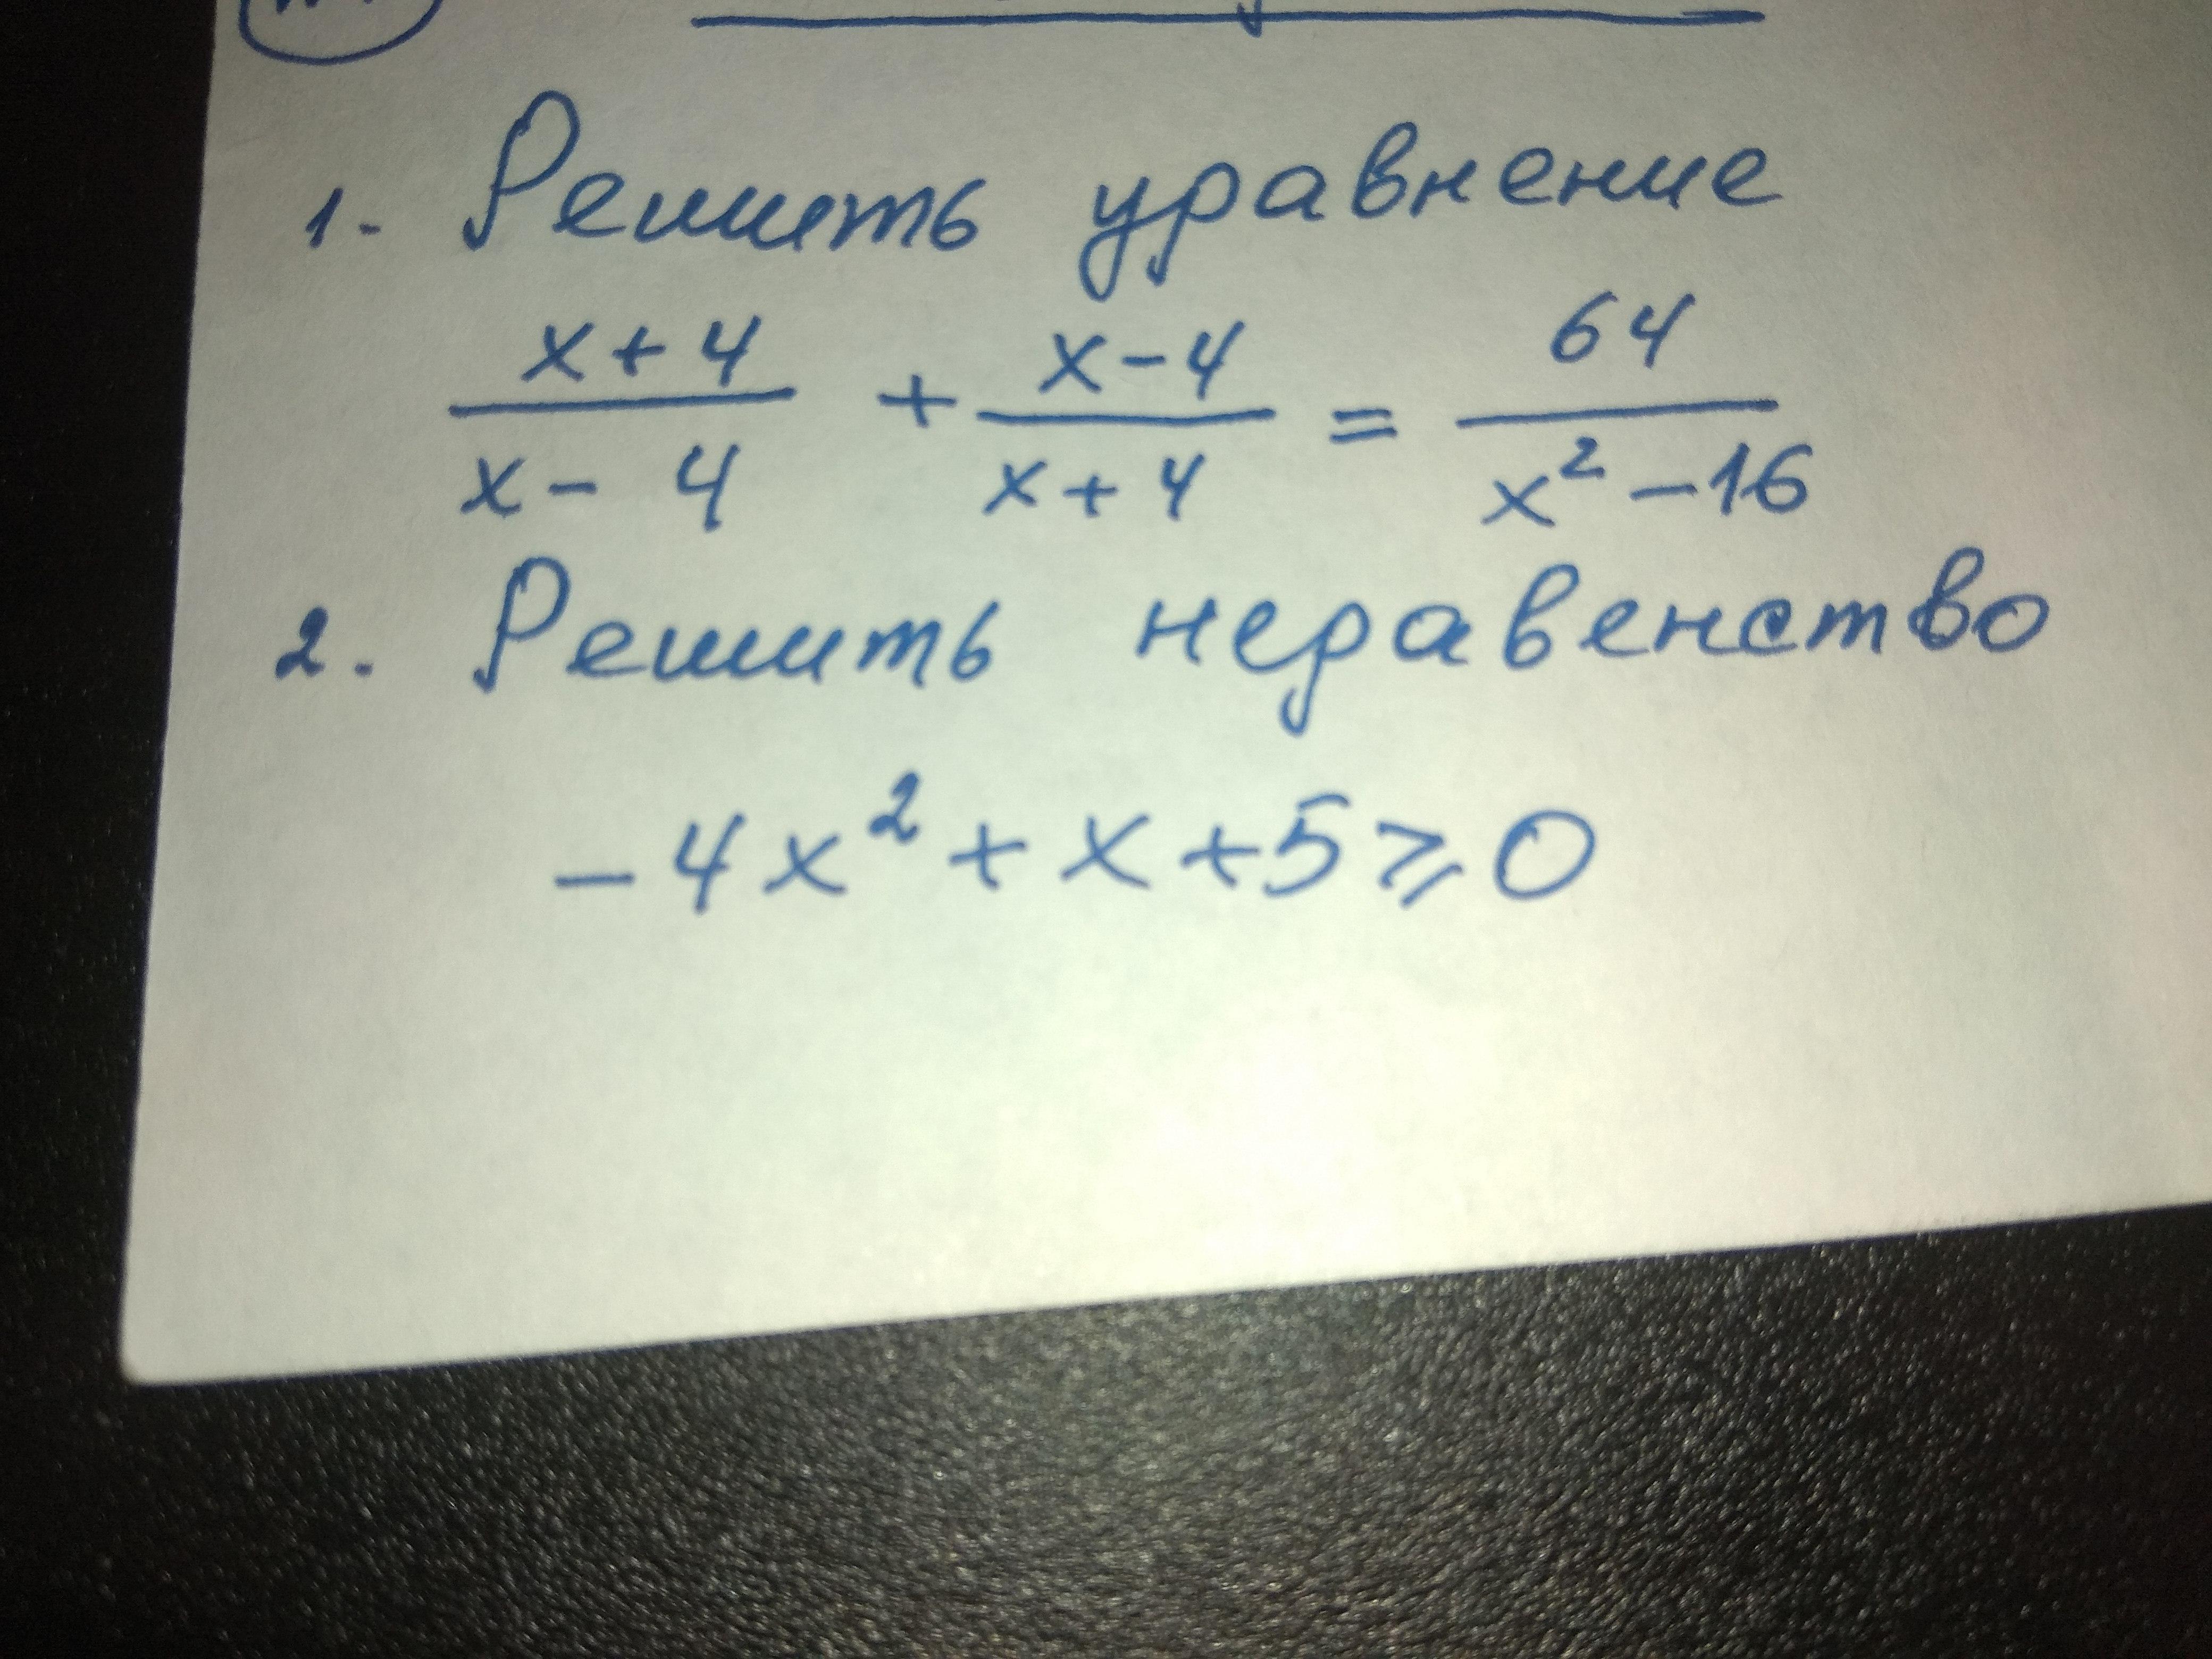 1. Решить уравнение
x+4/x-4 + x-4/x+4 = 64/x²-16
2. Решить неравенство
-4x²+x+5⩾0